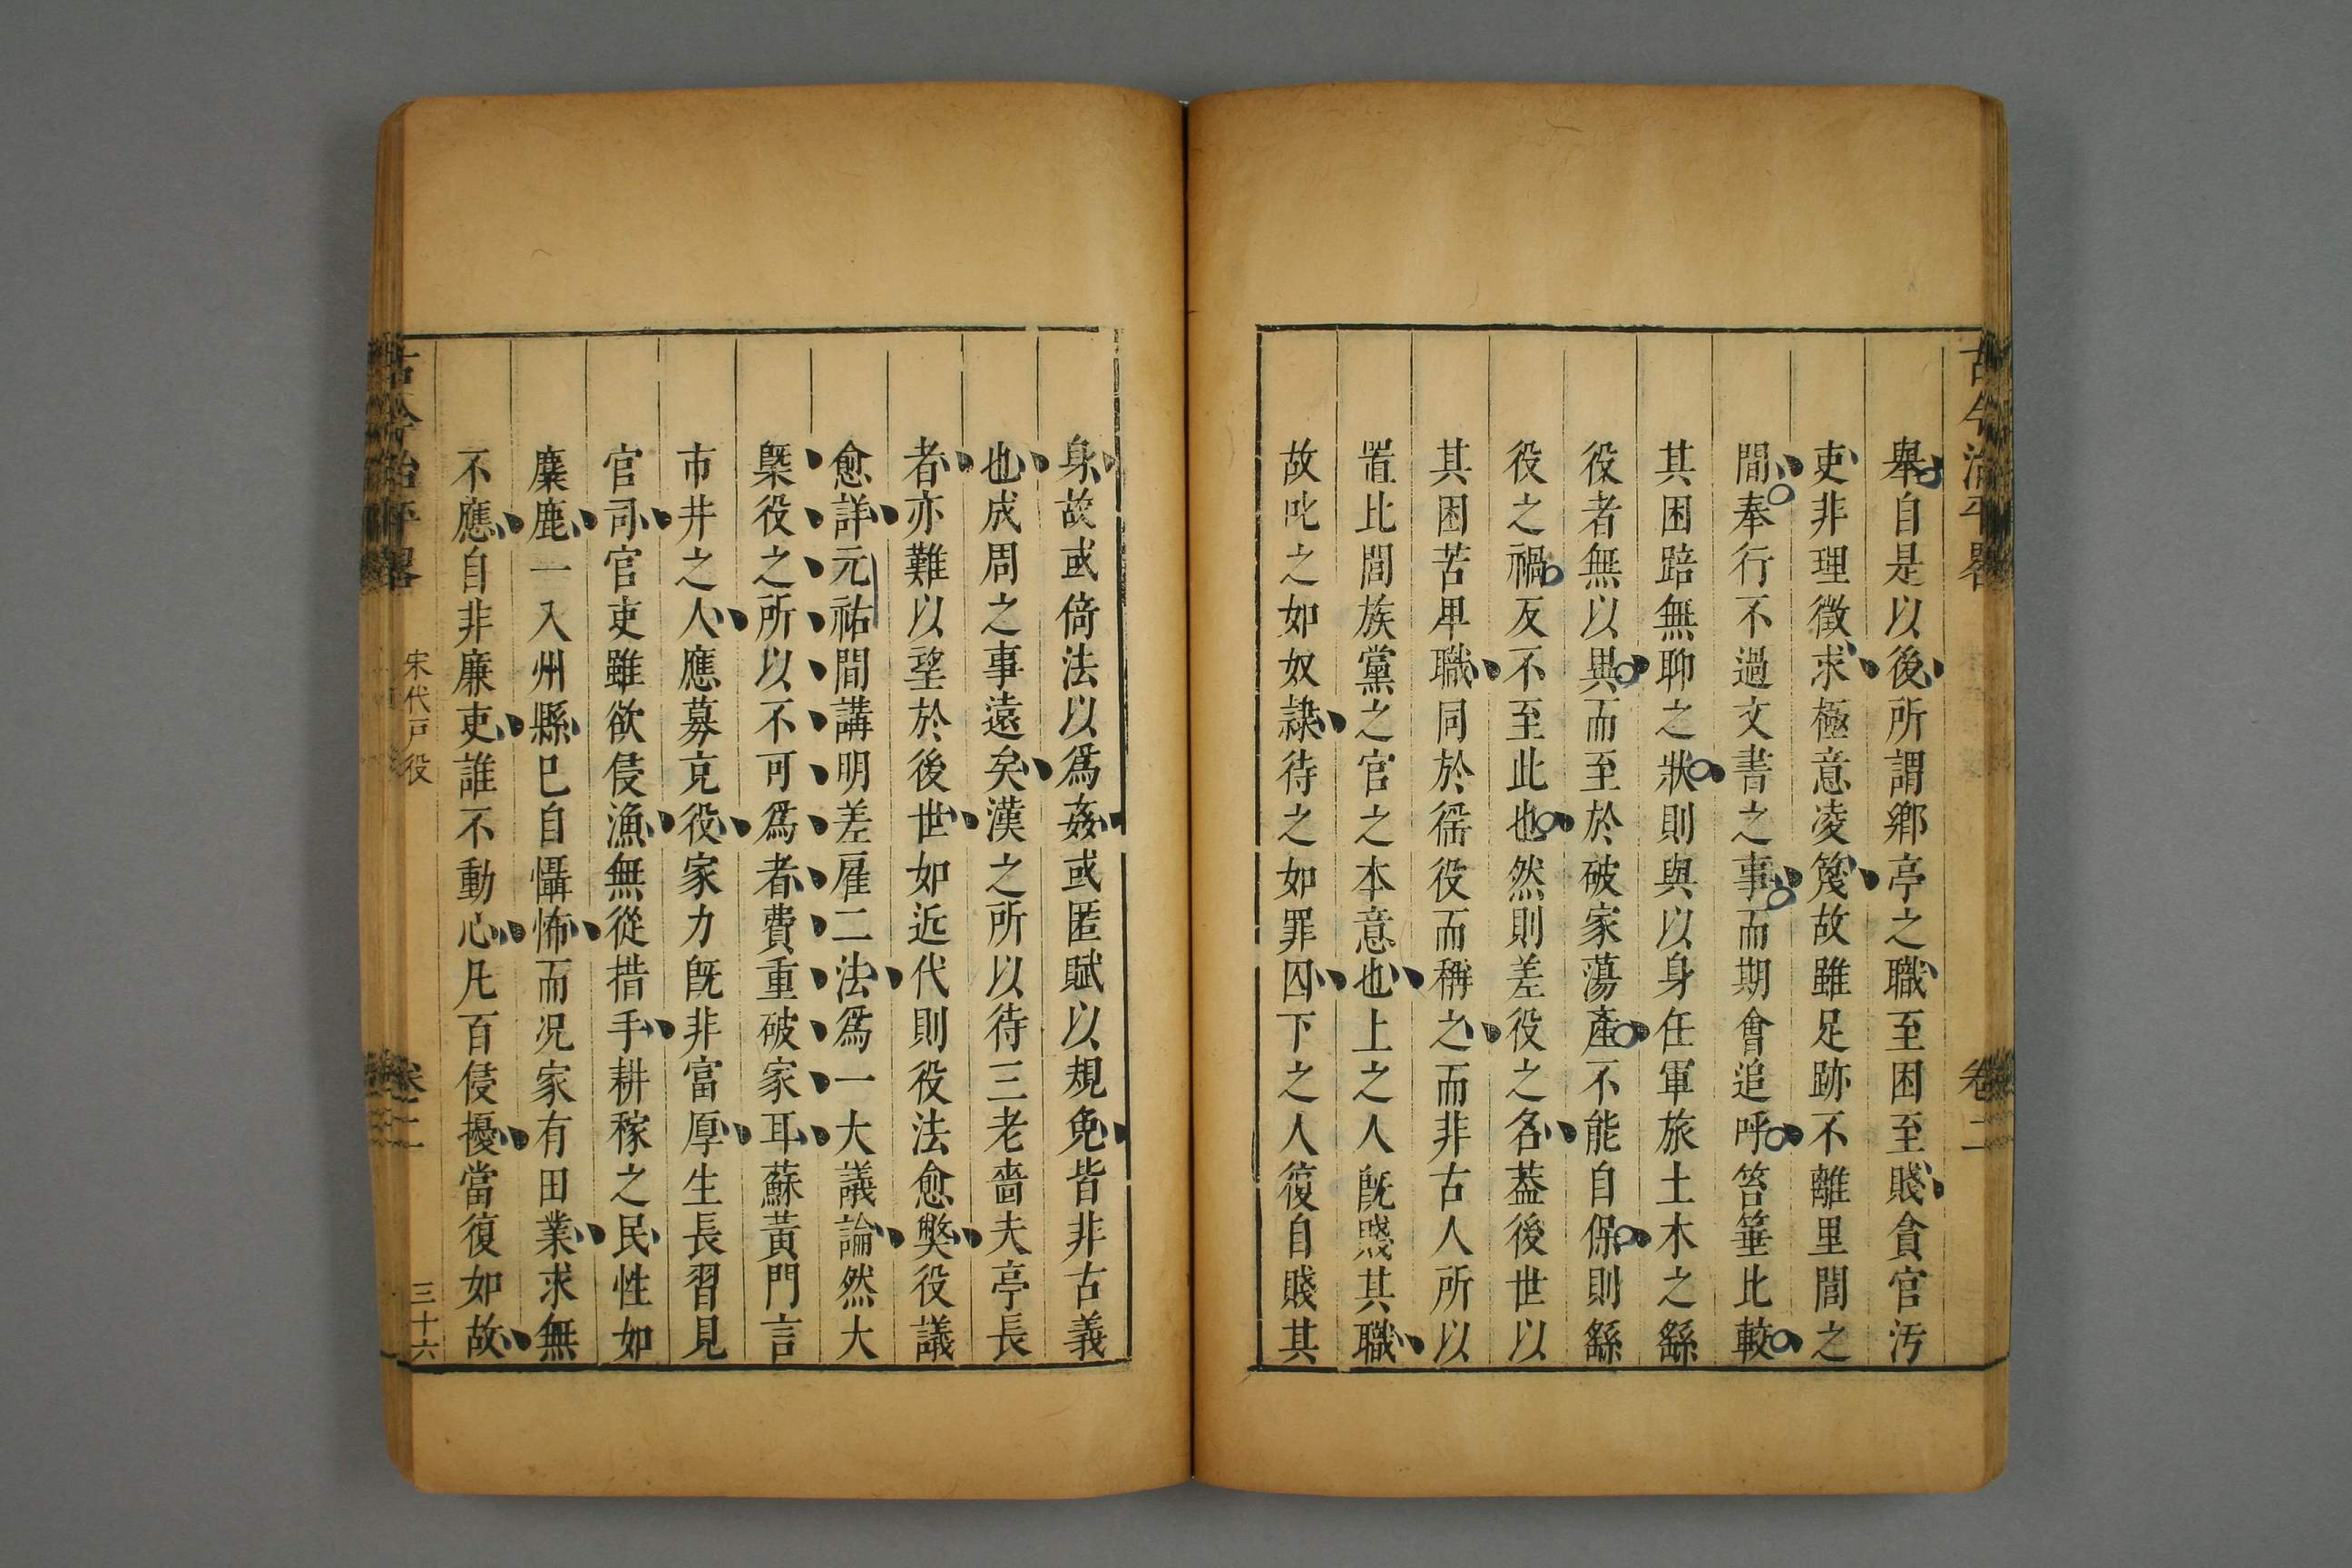 古今治平畧
卷二
舉自是以後所謂鄉亭之職至困至賤貪官汚
吏非理徵求極意凌篾故雖足跡不離里閭之
間奉行不過文書之事而期會追呼笞箠比較
其困踣無聊之狀則與以身任軍旅土木之繇
役者無以異而至於破家蕩產不能自保則繇
役之禍反不至此也然則差役之名葢後世以
其困苦卑職同於徭役而稱之而非古人所以
置比閭族黨之官之本意也上之人旣賤其職
故叱之如奴隷待之如罪囚下之人復自賤其
身故或倚法以爲姦或匿賦以規免皆非古義
也成周之事遠矣漢之所以待三老嗇夫亭長
者亦難以望於後世如近代則役法愈獘役議
愈詳元祐間講明差雇二法爲一大議論然大
槩役之所以不可爲者費重破家耳蘇黃門言
市井之人應募充役家力旣非富厚生長習見
官司官吏雖欲侵漁無從措手耕稼之民性如
麋鹿一入州縣已自懾怖而况家有田業求無
不應自非廉吏誰不動心凡百侵擾當復如故
古今治平畧
宋代戸役
卷二
三十六